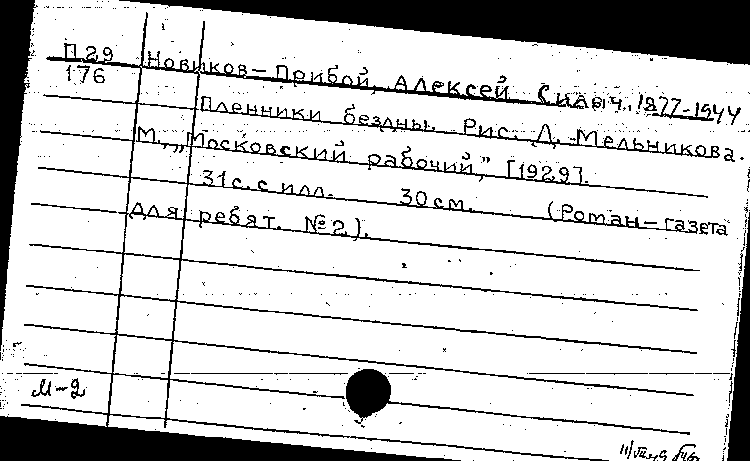 П29
176
Новиков-Прибой, Алексей Силыч. 1877-1944
Пленники бездны. Рис. Д. Мельникова.
М., „Московский рабочий," [1929].
31 с. с илл. 30 см. (Роман-газета
для ребят. №2).
М-2